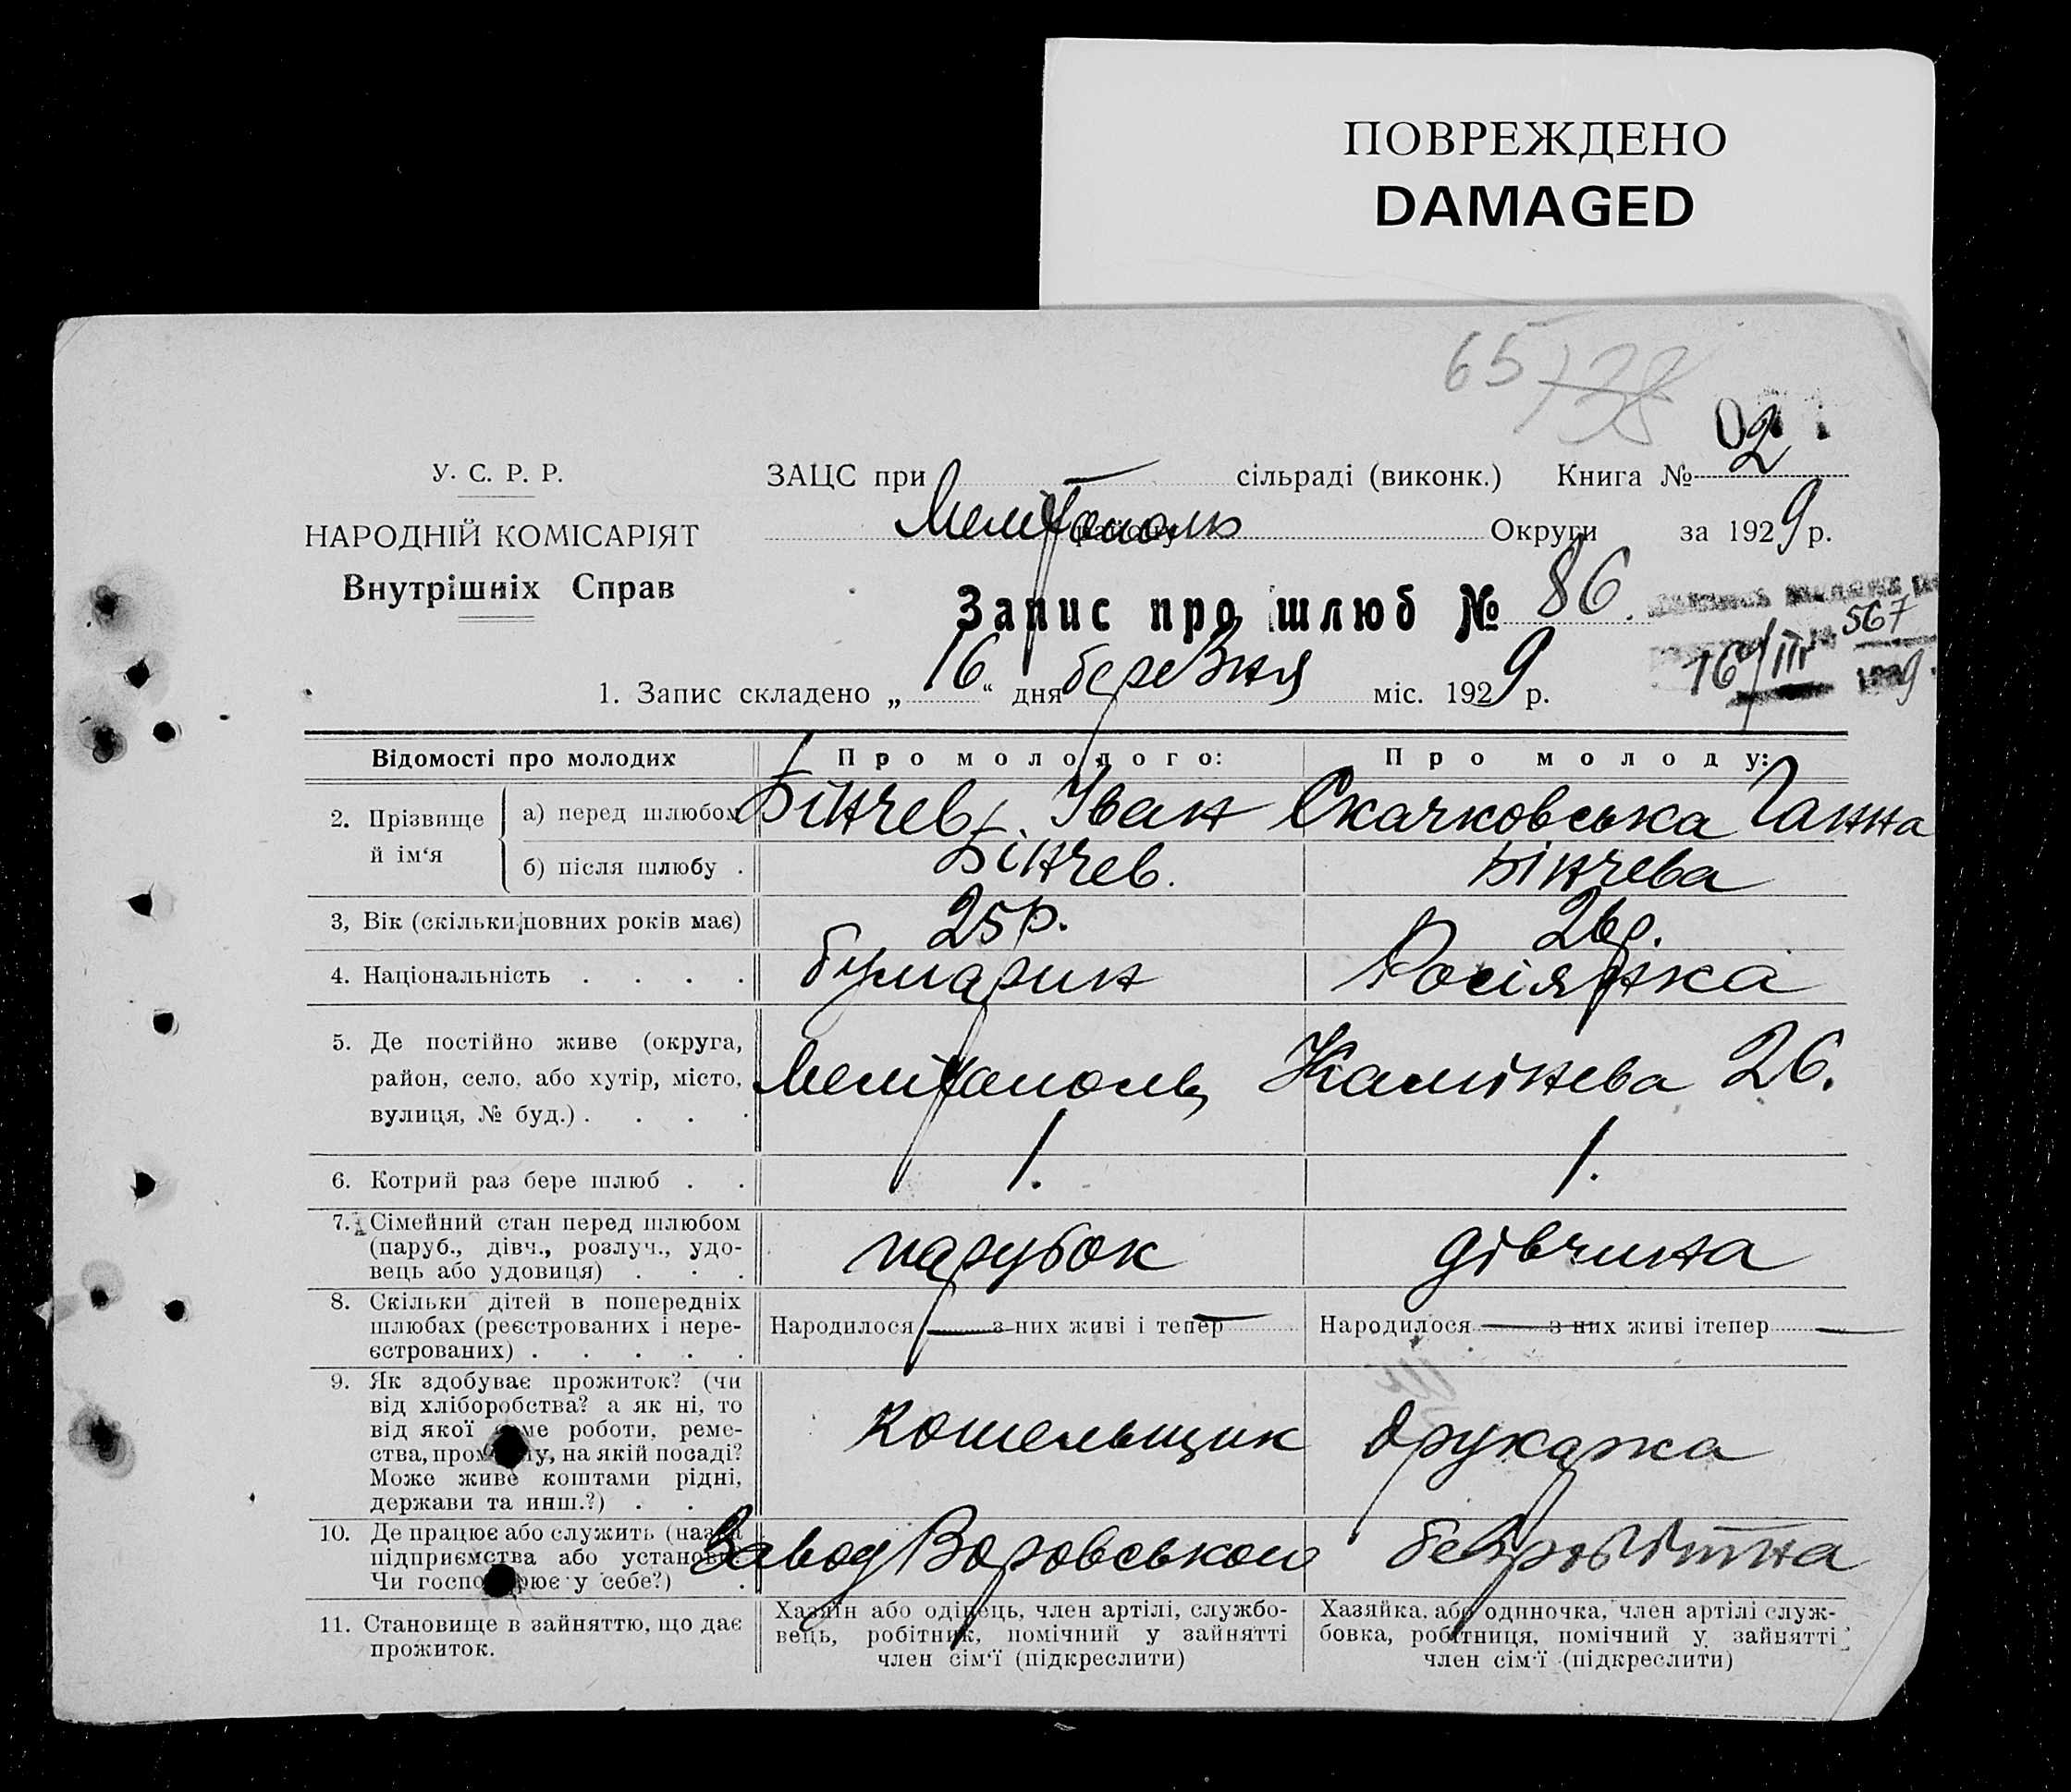 ПОВРЕЖДЕНО
DAMAGED
65
02
У. С. Р. Р.
НАРОДНІЙ КОМІСАРІЯТ
Внутрішніх Справ
ЗАЦС при сільраді (виконк.) Книга № 2
Мелітополь району Округи за 1929 р.
Запис про шлюб № 86.
567
16/III 1929
1. Запис складено „16“ дня березня міс. 1929 р.
Відомості про молодих Про молодого: Про молоду:
2. Прізвище й ім‘я
а) перед шлюбом Бінчев, Іван Скачковська Ганна
б) після шлюбу . Бінчев. Бінчева
3, Вік (скільки повних років має) 25 р. 26 р.
4. Національність . . . . булгарин Росіянка
5. Де постійно живе (округа,
район, село, або хутір, місто,
вулиця, № буд.) . . . .
Мелітополь, Камінева 26.
6. Котрий раз бере шлюб . . 1. 1.
7. Сімейний стан перед шлюбом
(паруб., дівч., розлуч., удо-
вець або удовиця) . . .
парубок дівчина
8. Скільки дітей в попередніх
шлюбах (реєстрованих і нере-
єстрованих) . . . . .
Народилося — з них живі і тепер —
Народилося — з них живі ітепер —
9. Як здобуває прожиток? (чи
від хліборобства? а як ні, то
від якої саме роботи, реме-
ства, промислу, на якій посаді?
Може живе коштами рідні,
держави та инш.?) . . .
кошельщик друкарка
10. Де працює або служить (назва
підприємства або установи
Чи господарює у себе?) .
Завод Воровського безробітна
11. Становище в зайняттю, що дає
прожиток.
Хазяїн або одінець, член артілі, службо-
вець, робітник, помічний у зайнятті
член сім‘ї (підкреслити)
Хазяйка, або одиночка, член артілі служ-
бовка, робітниця, помічний у зайнятті
член сім‘ї (підкреслити)